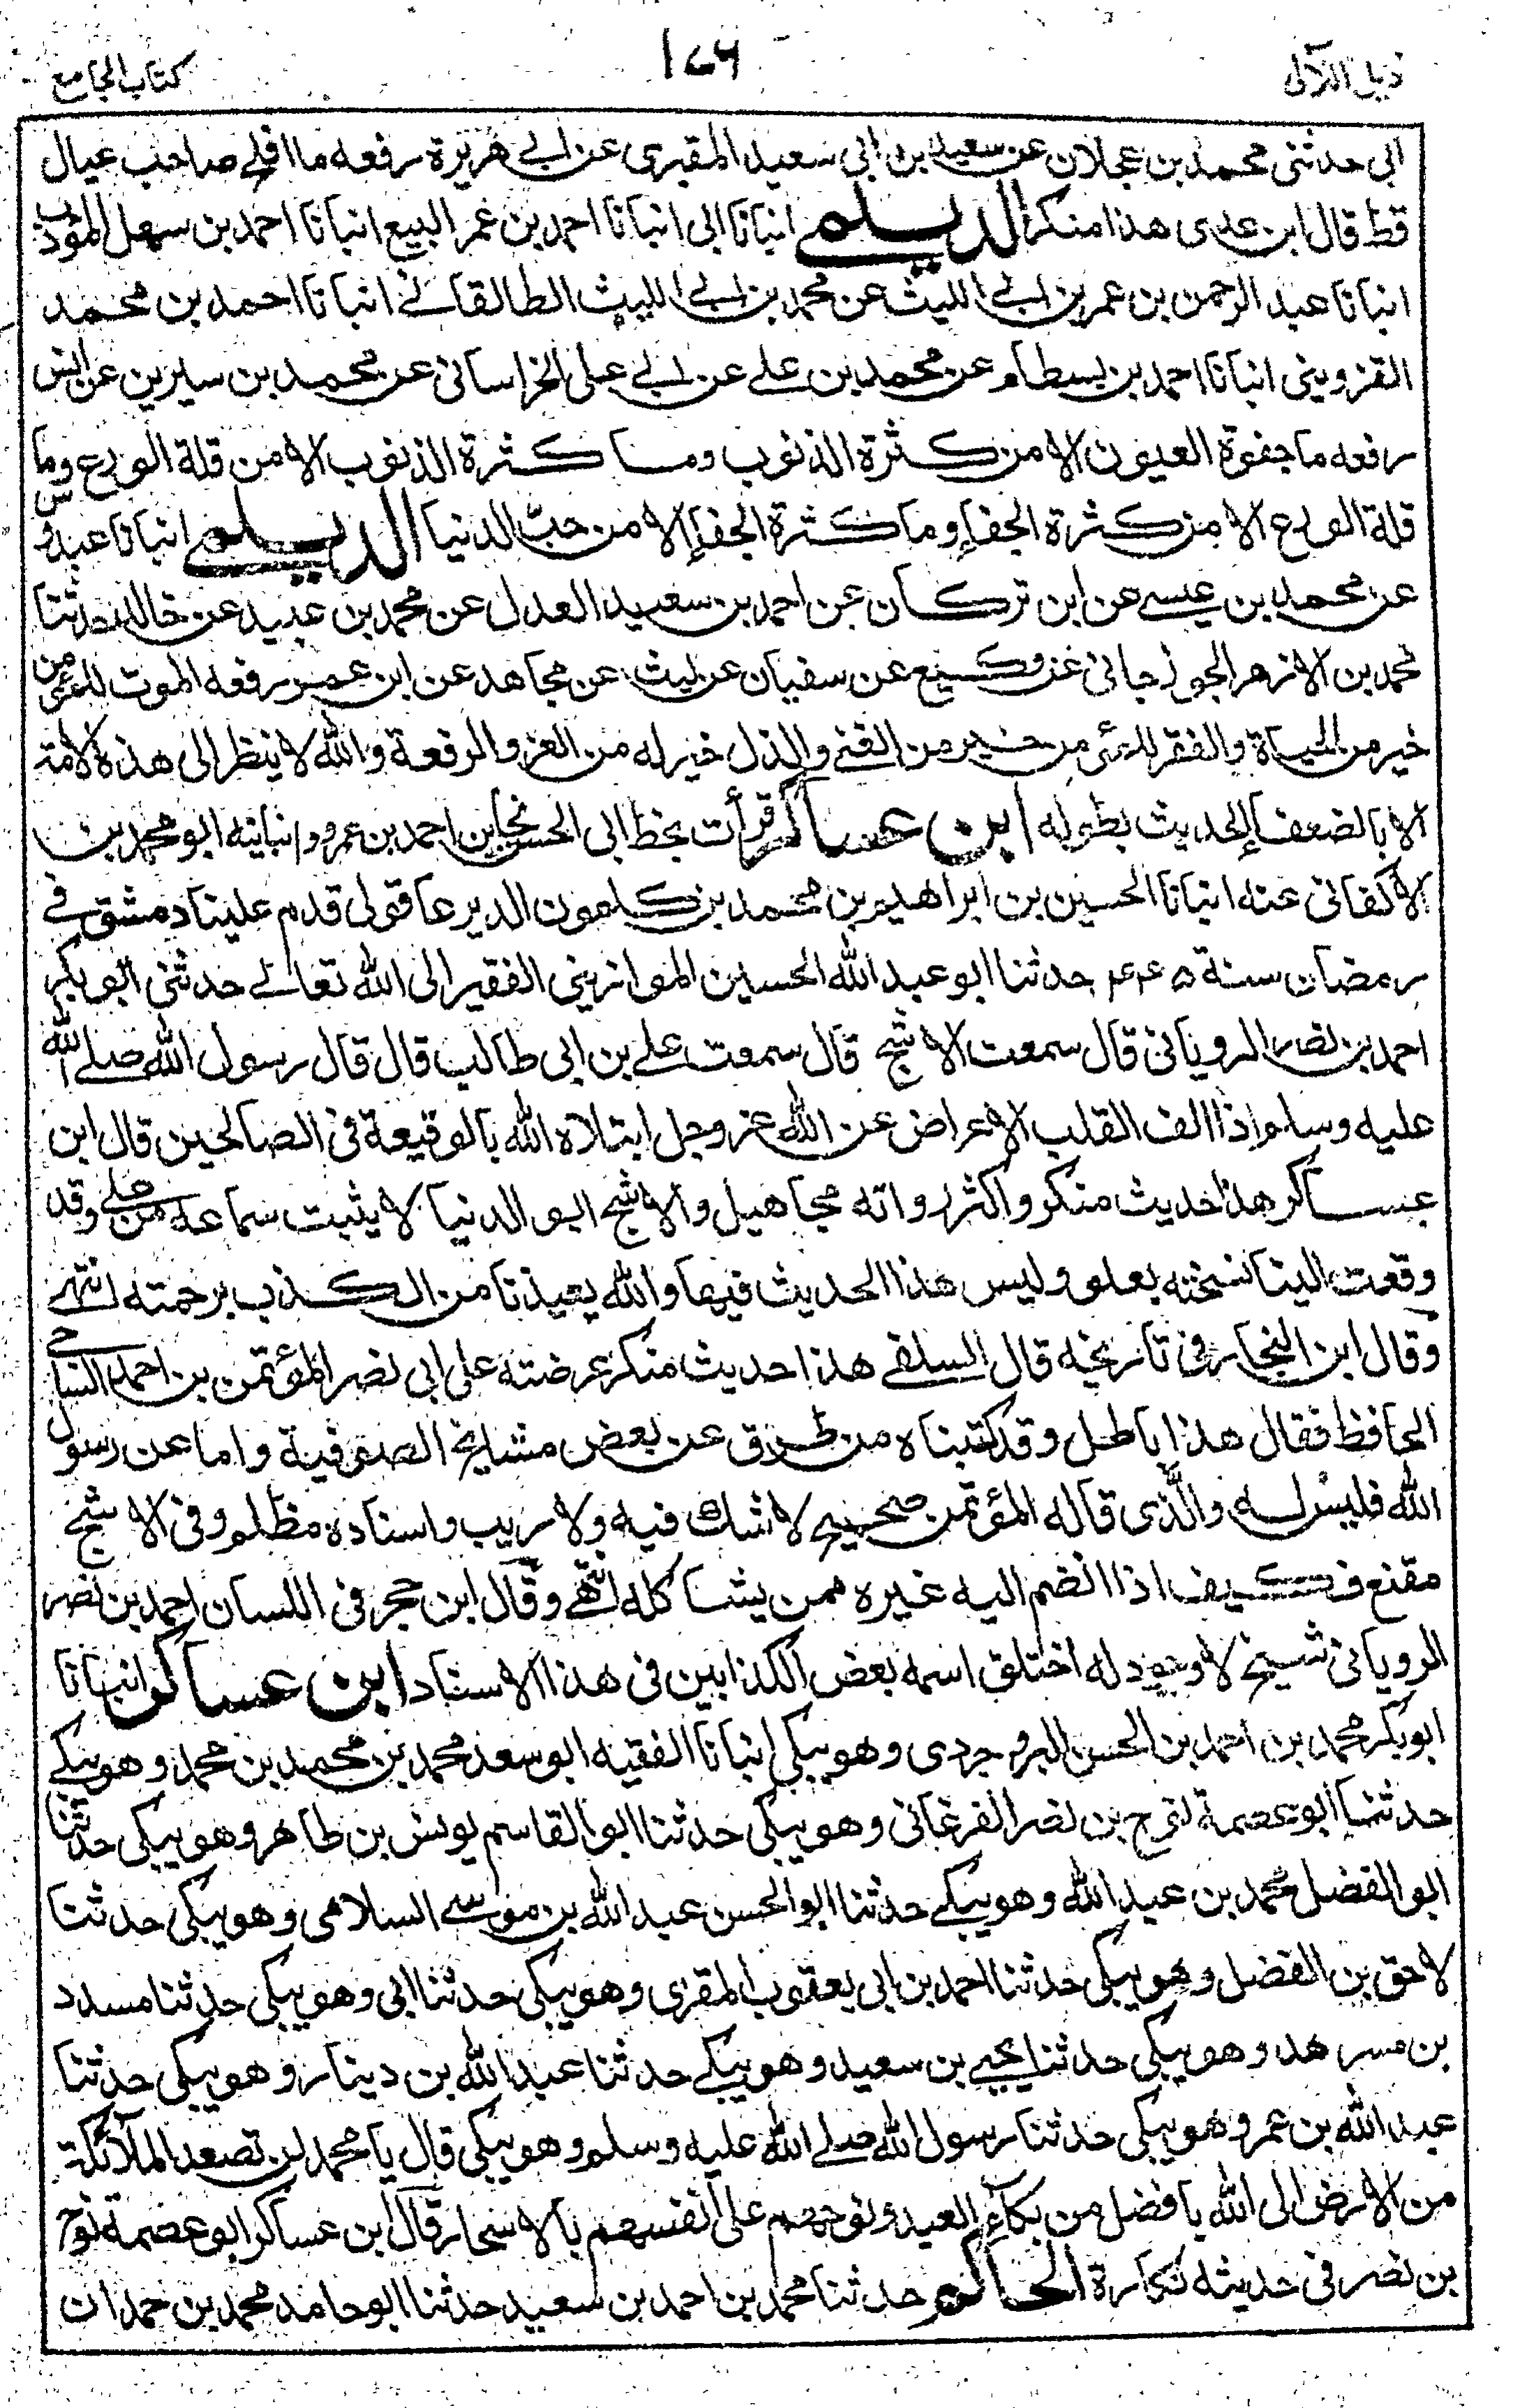 ذيل اللآلى ١٧٦ كتاب الجامع
ابى حدثنى محمد بن عجلان عن سعيد بن ابى سعيد المقبرى عن ابى هريرة رفعه ما افلح صاحب عيال
قط قال ابن عدى هذا منكر الديلمى انبانا ابى انبانا احمد بن عمر البيع انبانا احمد بن سهل المؤدب
انبانا عبد الرحمن بن عمر بن ابى الليث عن محمد بن ابى الليث الطالقانى انبانا احمد بن محمد
القزوينى انبانا احمد بن بسطام عن محمد بن على عن ابى على الخراسانى عن محمد بن سيرين عن انس
رفعه ما جفوة العيون الا من كثرة الذنوب وما كثرة الذنوب الا من قلة الورع وما
قلة الورع الا من كثرة الجفاء وما كثرة الجفاء الا من حبّ الدنيا الديلمى انبانا عبدوس
عن محمد بن عيسى عن ابن تركان عن احمد بن سعيد العدل عن محمد بن عبيد عن خالد حدثنا
محمد بن الازهر الجوزجانى عن وكيع عن سفيان عن ليث عن مجاهد عن ابن عمر رفعه الموت للمؤمن
خير من الحياة والفقر للمؤمن خير من الغنى والذل خير له من العز والرفعة والله لا ينظر الى هذه الامة
الا بالضعفاء الحديث بطوله ابن عساكر قرأت بخط ابى الحسن نجا بن احمد بن عمرو وانبانيه ابو محمد بن
الاكفانى عنه انبانا الحسين بن ابراهيم بن محمد بن كلمون الديرعاقولى قدم علينا دمشق فى
رمضان سنة ٤٤٥ حدثنا ابو عبد الله الحسين الموازينى الفقير الى الله تعالى حدثنى ابو بكر
احمد بن نصر الرويانى قال سمعت الاشج قال سمعت على بن ابى طالب قال قال رسول الله صلى الله
عليه وسلم اذا الف القلب الاعراض عن الله عز وجل ابتلاه الله بالوقيعة فى الصالحين قال ابن
عساكر هذا حديث منكر واكثر رواته مجاهيل والاشج ابو الدنيا لا يثبت سماعه من على وقد
وقعت الينا نسخته بعلو وليس هذا الحديث فيها والله يعيذنا من الكذب برحمته انتهى
وقال ابن النجار فى تاريخه قال السلفى هذا حديث منكر عرضته على ابى نصر المؤتمن بن احمد الساجى
الحافظ فقال هذا باطل وقد كتبناه من طرق عن بعض مشايخ الصوفية واما عن رسول
الله فليس له والّذى قاله المؤتمن صحيح لا شك فيه ولا ريب واسناده مظلم وفى الاشج
مقنع فكيف اذا انضم اليه غيره ممن يشاكله انتهى وقال ابن حجر فى اللسان احمد بن نصر
الرويانى شيخ لا وجود له اختلق اسمه بعض الكذابين فى هذا الاسناد ابن عساكر انبانا
ابو بكر محمد بن احمد بن الحسن البروجردى وهو يبكى انبانا الفقيه ابو سعد محمد بن محمد بن محمد وهو يبكى
حدثنا ابو عصمة نوح بن نصر الفرغانى وهو يبكى حدثنا ابو القاسم يونس بن طاهر وهو يبكى حدثنا
ابو الفضل محمد بن عبد الله وهو يبكى حدثنا ابو الحسن عبد الله بن موسى السلامى وهو يبكى حدثنا
لاحق بن الفضل وهو يبكى حدثنا احمد بن ابى يعقوب المقرى وهو يبكى حدثنا ابى وهو يبكى حدثنا مسدد
بن مسرهد وهو يبكى حدثنا يحيى بن سعيد وهو يبكى حدثنا عبد الله بن دينار وهو يبكى حدثنا
عبد الله بن عمر وهو يبكى حدثنا رسول الله صلى الله عليه وسلم وهو يبكى قال يا محمد لن تصعد الملآئكة
من الارض الى الله بافضل من بكآء العبيد ونوحهم على انفسهم بالاسحار قال ابن عساكر ابو عصمة نوح
بن نصر فى حديثه نكارة الحاكم حدثنا محمد بن احمد بن سعيد حدثنا ابو حامد محمد بن حمدان